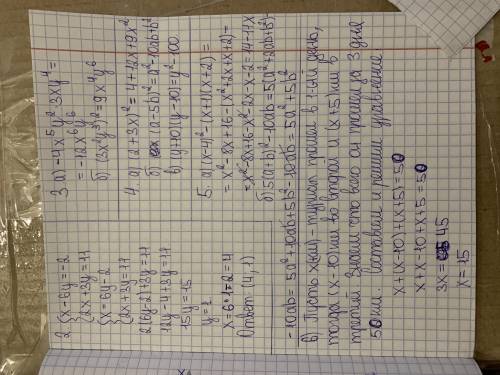 2. {x-6y=-2
{2x+3y=11
{x=6y-2
{2x+3y=11
2(6y-2)+3y=11
12y-4+3y=11
15y=15
y=1
x=6*1-2=4
Ответ (4,1)
3 а) -4x⁵y²·3xy⁴=
=-12x⁶y⁶
б) (3x²y³)²=9x⁴y⁶
4. а) (2+3x)²=4+12x+9x²
б) (a-5b)²=a²-10ab+b²
в) (y+10)(y-10)=y²-100
5. а) (x-4)²-(x+1)(x+2)=
=x²-8x+16-(x²+2x+x+2)=
=x²-8x+16-x²-2x-x-2=14-11x
б) 5(a+b)²-10ab=5(a²+2ab+b²)
-10ab=5a²+10ab+5b²-10ab=5a²+5b²
6) Пусть x(км)-турист прошел в 1-ый день,
тогда (x-10) км во второй и (x+5) км в
третий. Знаем что всего он прошел за 3 дня
50 км. Составим и решим уравнение
x+(x-10)+(x+5)=50
x+x-10+x+5=50
3x=45
x=15